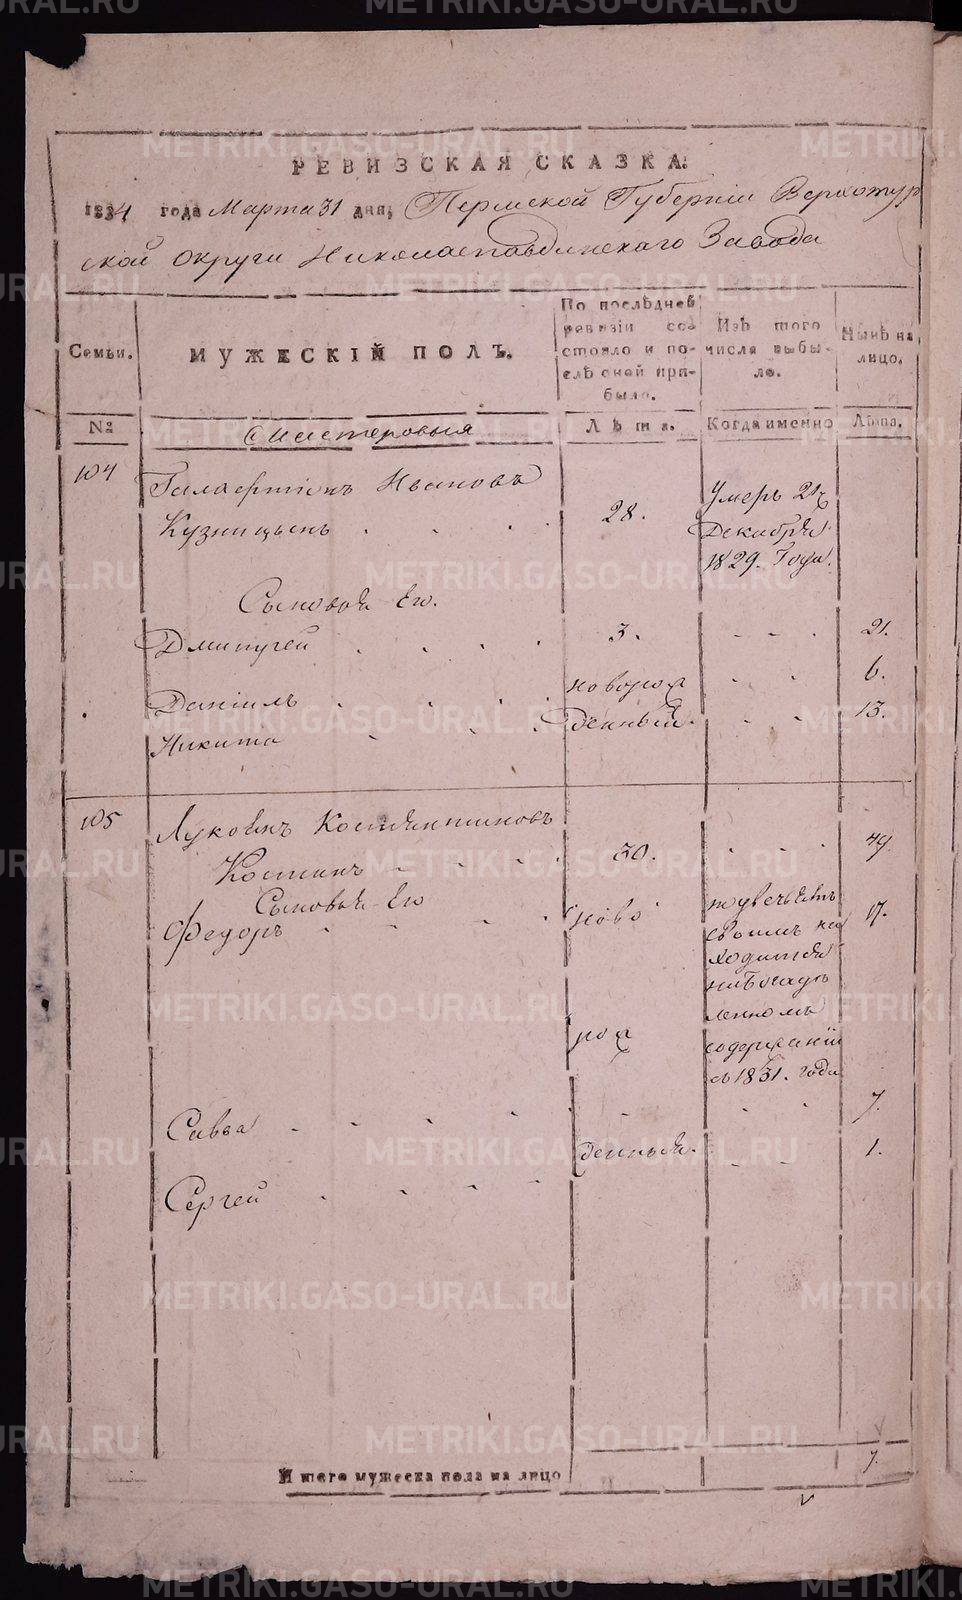 РЕВИЗСКАЯ СКАЗКА.
1834 года Марта 31 дня, Пермской Губерніи Верхотур
ской округи Николаепавдинскаго Завода
Семьи.
МУЖЕСКІЙ ПОЛЪ.
По послѣдней
ревизіи со-
стояло и по-
слѣ оней при-
было.
Изъ того
числа выбы-
ло.
Нынѣ на
лицо.
№
Мастеровыя
Лѣта.
Когда именно
Лѣта.
104
Галактіонъ Ивановъ
Кузницынъ
28.
Умеръ 21
Декабря
1829. Года.
Сыновья Его.
Дмитрей
3.
21.
Даніилъ
новорож
6.
Никита
денный.
13.
105
Лукоянъ Костянтиновъ
Костинъ
30.
49
Сыновья Его
Федоръ
ново
17.
своимъ на
ходится
содержаніи
съ 1831. года
рож
Савва
7.
денныя.
1.
Сергей
Итого мужеска пола на лицо
7.
METRIKI.GASO-URAL.RU